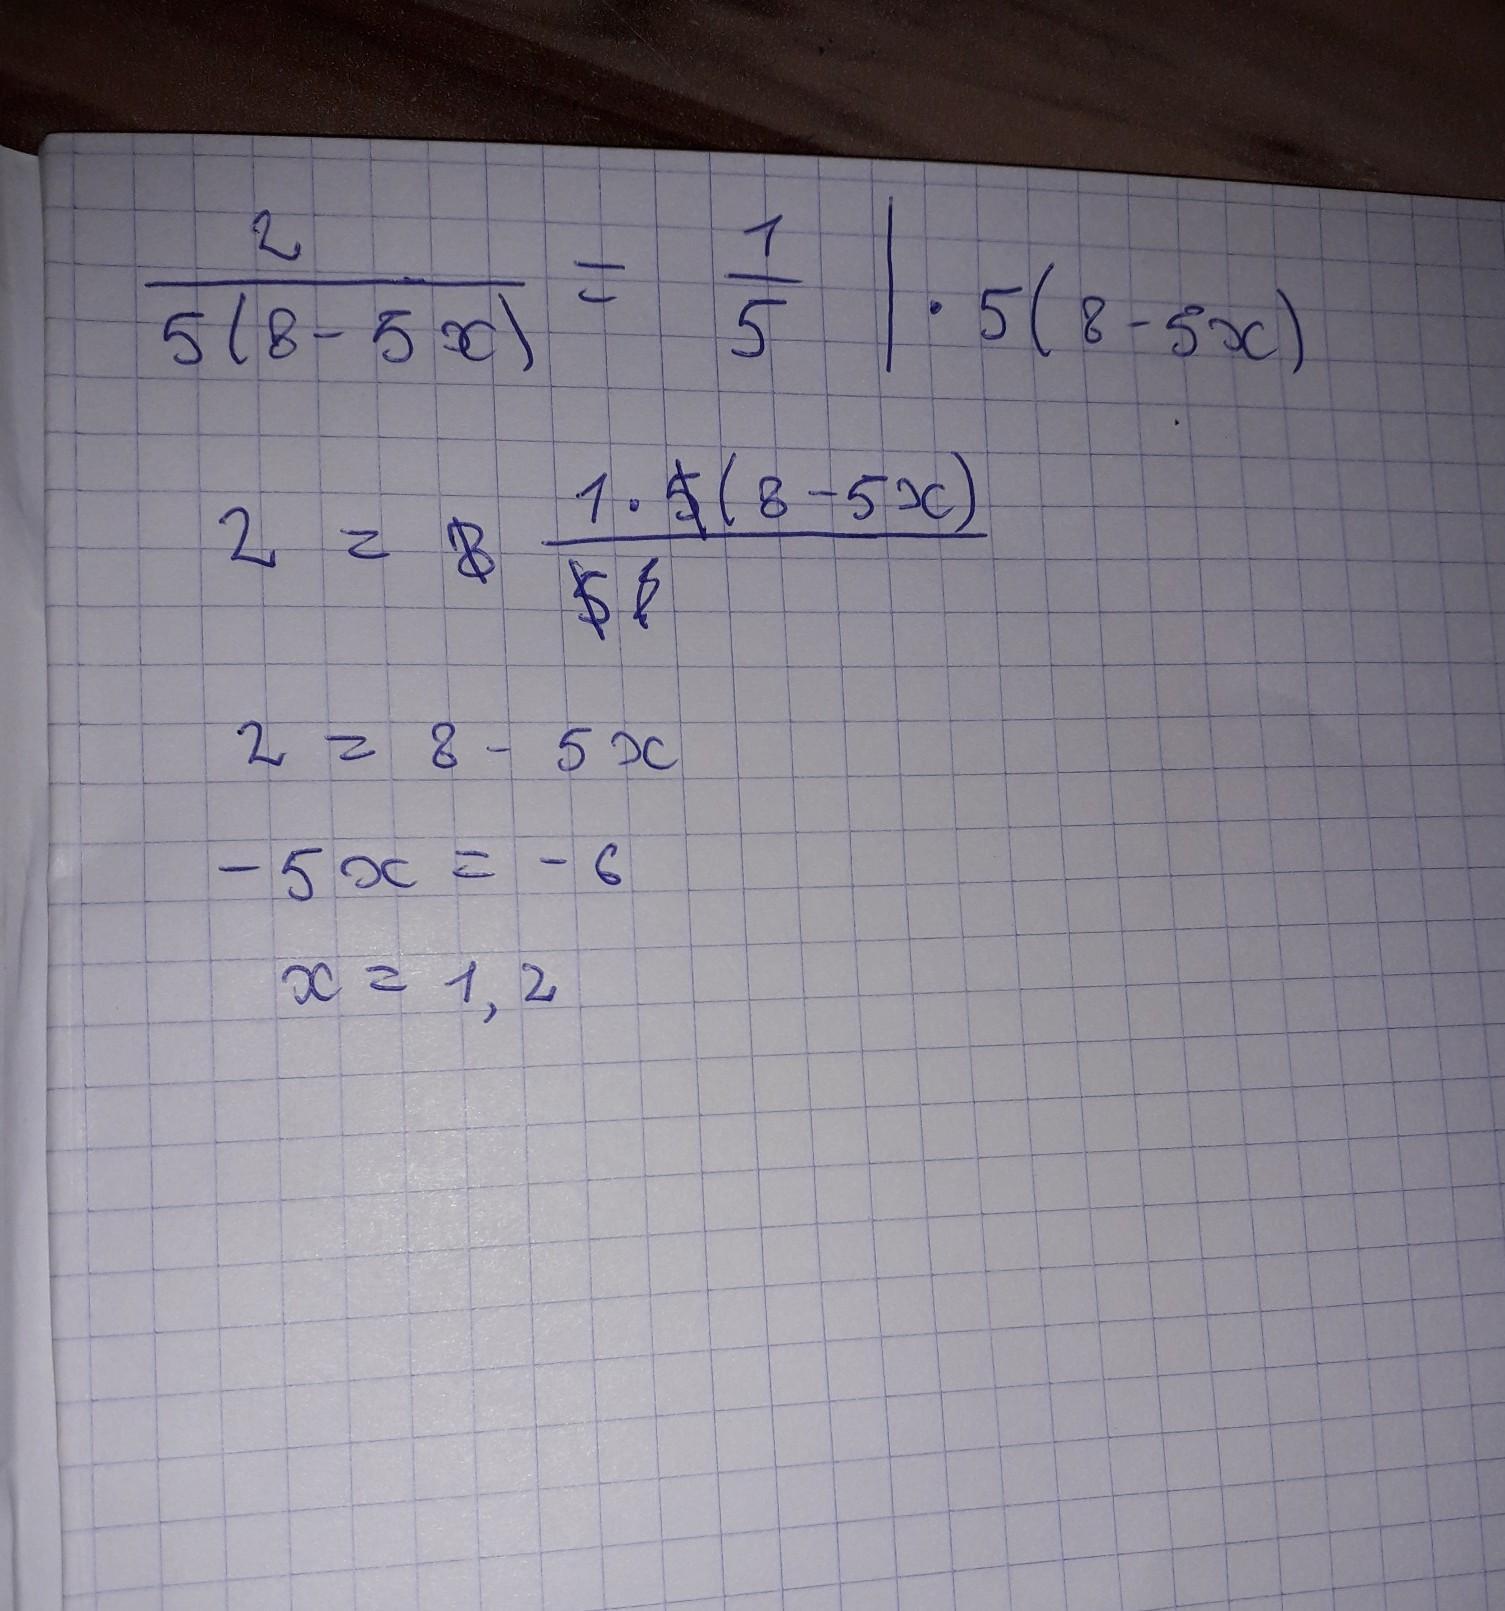 2/(5(8-5x)) = 1/5 | · 5(8-5x)
2 = (1 · 5(8-5x))/5
2 = 8 - 5x
-5x = -6
x = 1,2